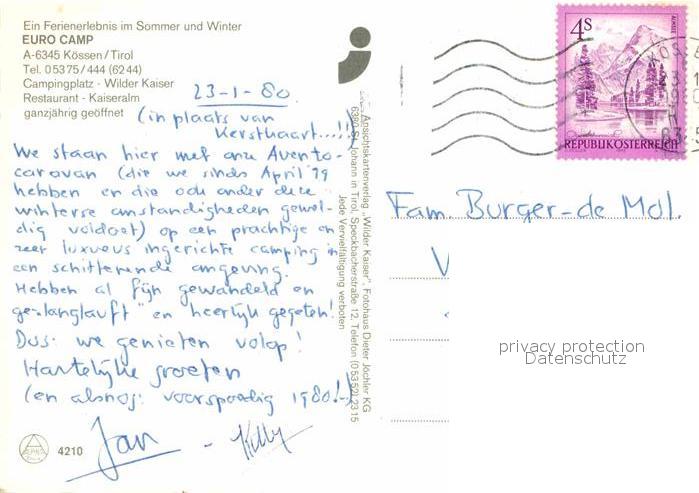 Ein Ferienerlebnis im Sommer und Winter
EURO CAMP
A-6345 Kössen/Tirol
Tel. 05375/444 (6244)
Campingplatz - Wilder Kaiser
Restaurant - Kaiseralm
ganzjährig geöffnet
23-1-80
(in plaats van
Kerstkaart...!!)
We staan hier met onze Avento-
caravan (die we sinds April '79
hebben en die ook onder deze
winterse omstandigheden gewel-
dig voldoet) op een prachtige en
zeer luxueus ingerichte camping in
een schitterende omgeving.
Hebben al fijn gewandeld en
ge-"langlauft" en heerlijk gegeten!
Dus: we genieten volop!
Hartelijke groeten
(en alsnog: voorspoedig 1980!-)
Jan - Kelly
4210
Ansichtskartenverlag „Wilder Kaiser", Fotohaus Dieter Jöchler KG
6380 St. Johann in Tirol, Speckbacherstraße 12, Telefon (05352) 2315
Jede Vervielfältigung verboten
4S
ALMSEE
REPUBLIK ÖSTERREICH
Fam. Burger-de Mol.
V
privacy protection
Datenschutz